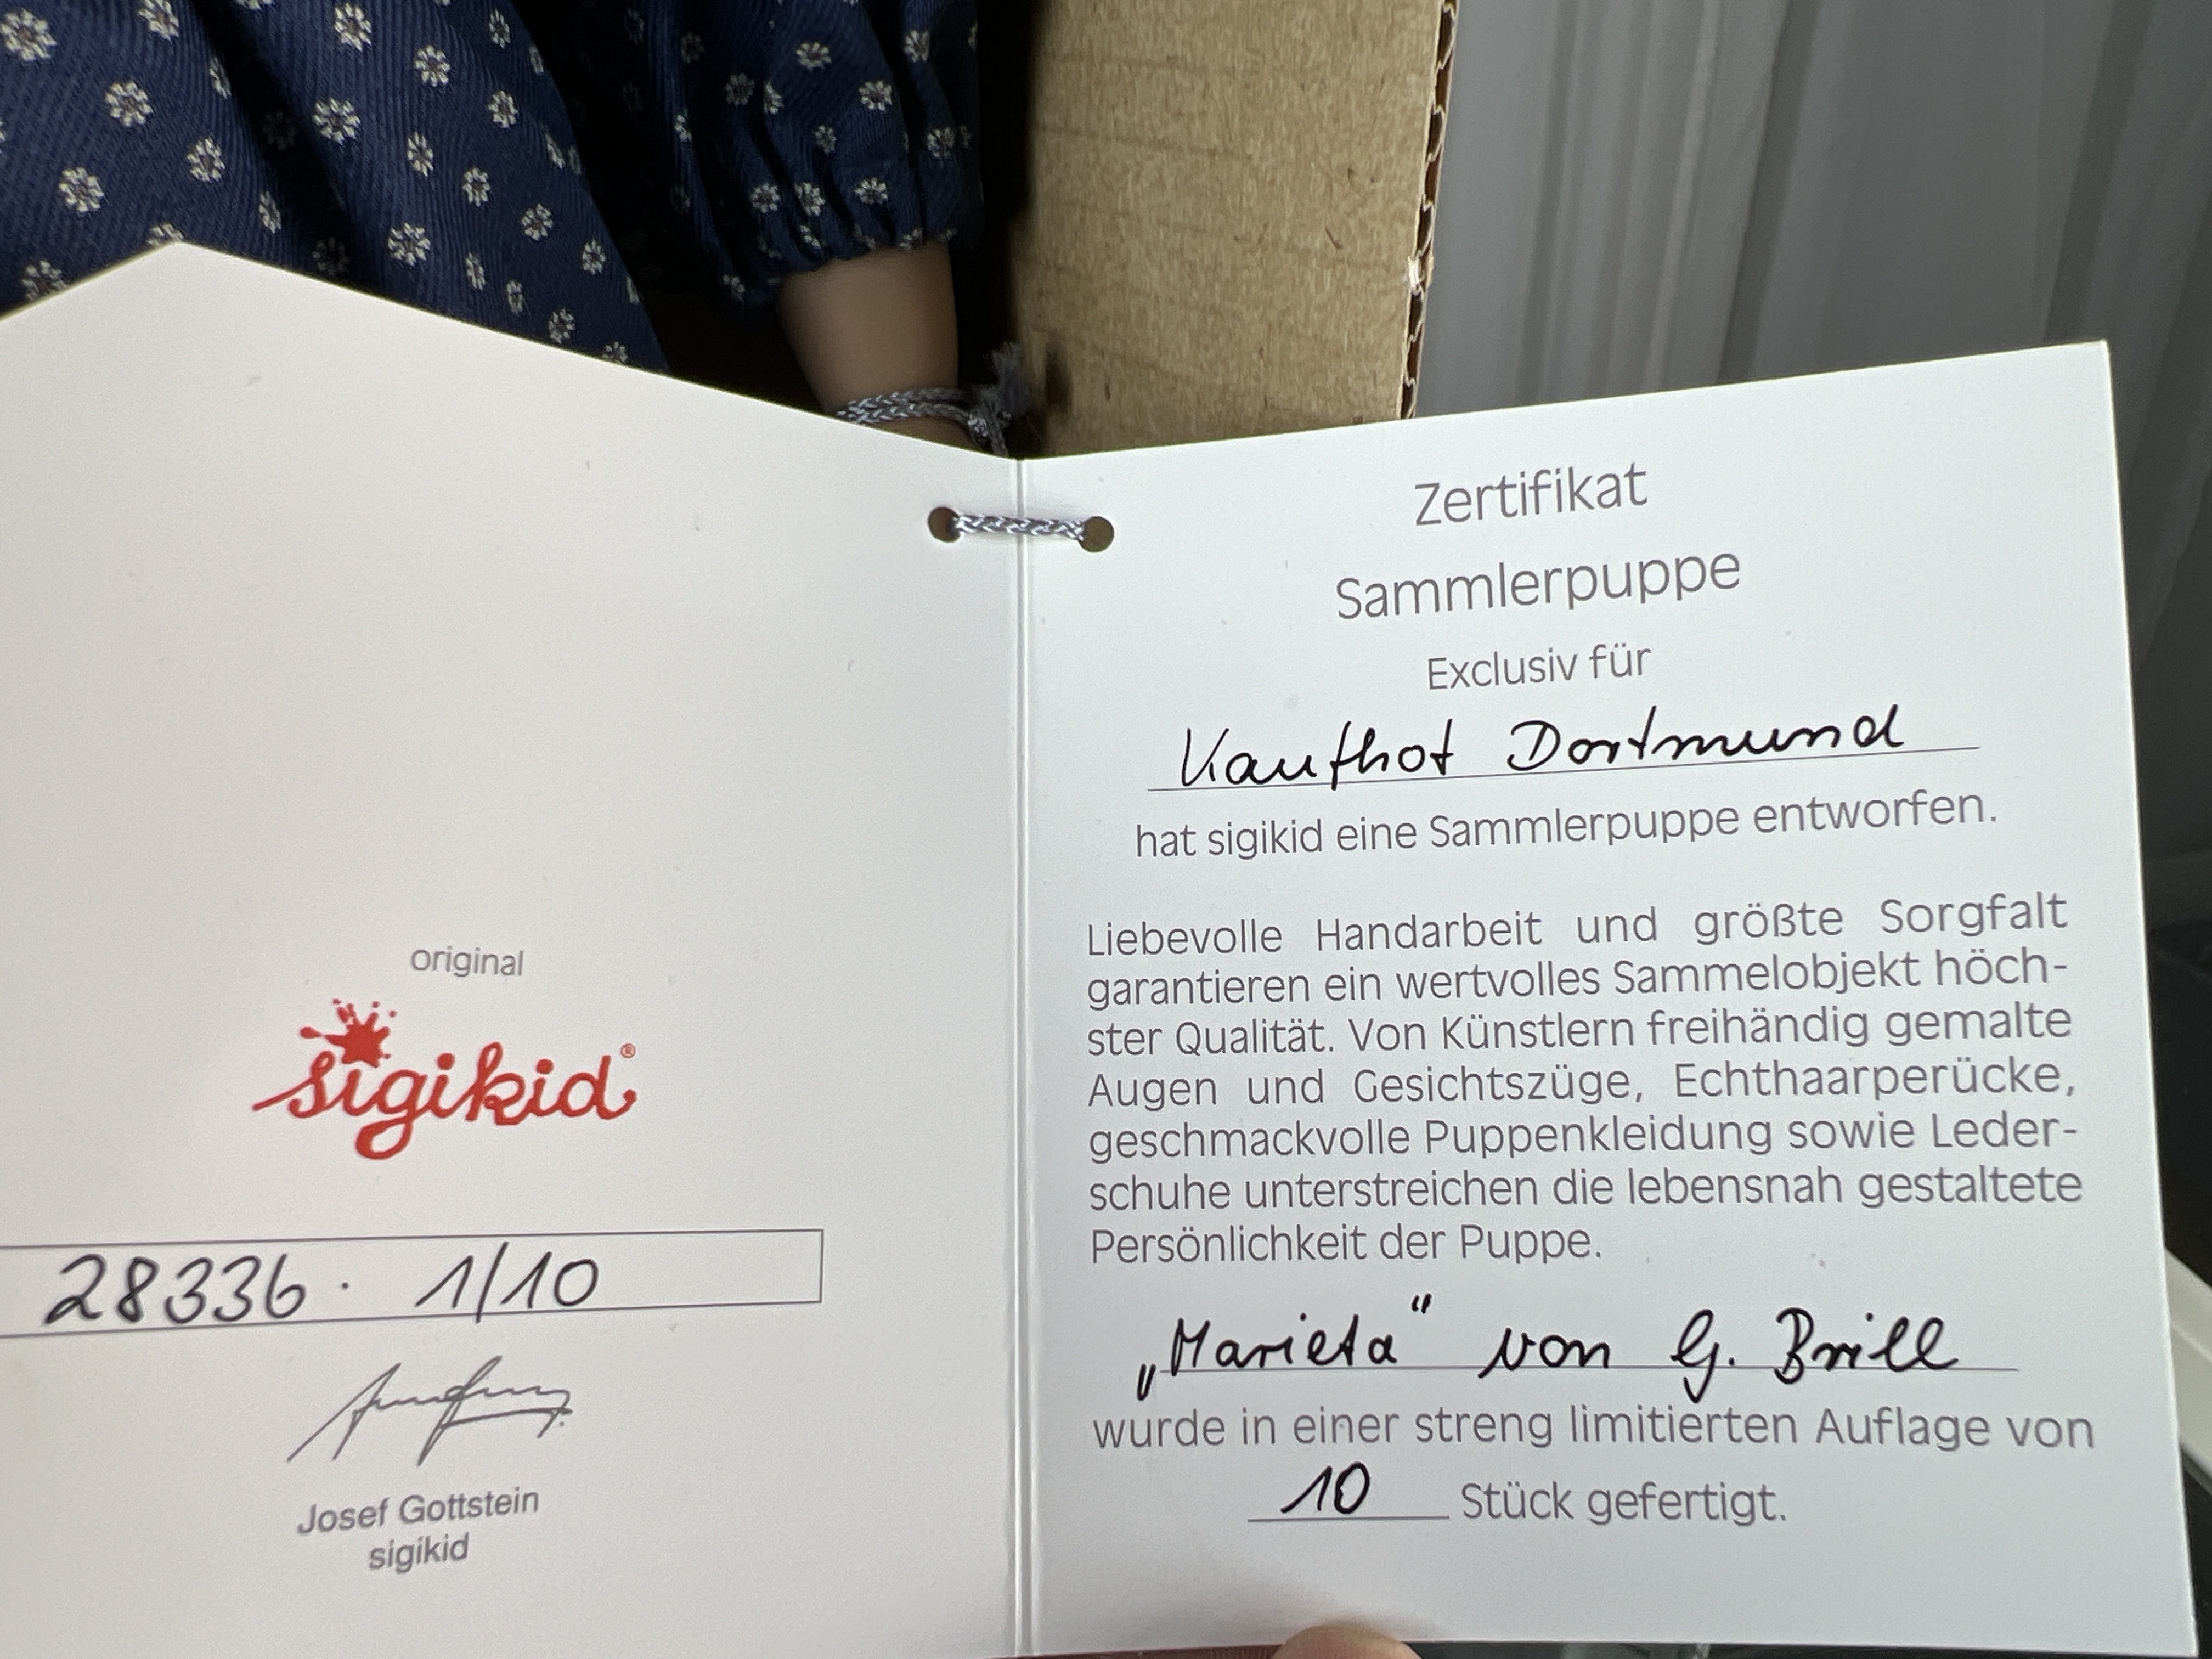 original
sigikid®
28336. 1/10
Josef Gottstein
sigikid
Zertifikat
Sammlerpuppe
Exclusiv für
Kaufhof Dortmund
hat sigikid eine Sammlerpuppe entworfen.
Liebevolle Handarbeit und größte Sorgfalt
garantieren ein wertvolles Sammelobjekt höch-
ster Qualität. Von Künstlern freihändig gemalte
Augen und Gesichtszüge, Echthaarperücke,
geschmackvolle Puppenkleidung sowie Leder-
schuhe unterstreichen die lebensnah gestaltete
Persönlichkeit der Puppe.
„Marieta“ von G. Brill
wurde in einer streng limitierten Auflage von
10 Stück gefertigt.